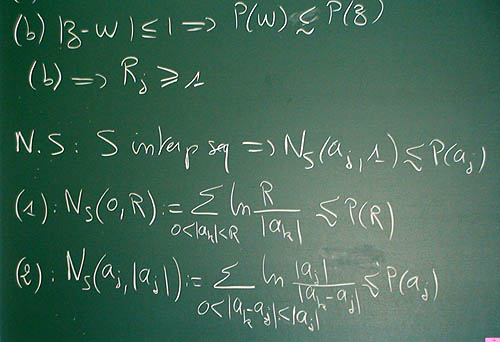 (b) |z-w| ≤ 1 ⟹ P(w) ≲ P(z)
(b) ⟹ R_j ⩾ 1
N.S: S interp seq ⟹ N_S(a_j, 1) ≲ P(a_j)
(1): N_S(0,R) := ∑_{0<|a_k|<R} ln R/|a_k| ≲ P(R)
(2): N_S(a_j, |a_j|) := ∑_{0<|a_k-a_j|≤|a_j|} ln |a_j|/|a_k-a_j| ≲ P(a_j)